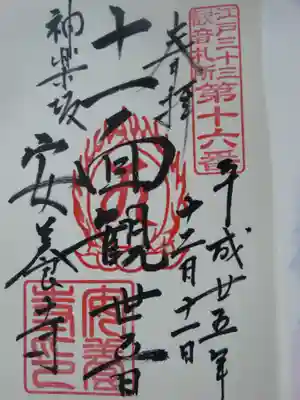 江戸三十三
観音札所
第十六番
奉拝
平成廿五年
十二月十一日
十一面観世音
神楽坂
安養寺